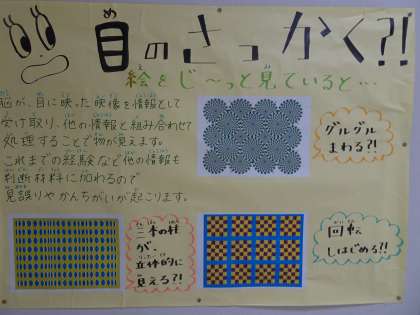 目のさっかく?!
絵をじ〜っと見ていると…
脳が、目に映った映像を情報として
受け取り、他の情報と組み合わせて
処理することで物が見えます。
これまでの経験など他の情報も
判断材料に加わるので
見誤りやかんちがいが起こります。
グルグル
まわる?!
三本の柱
が、
立体的に
見える?!
回転
しはじめる!!